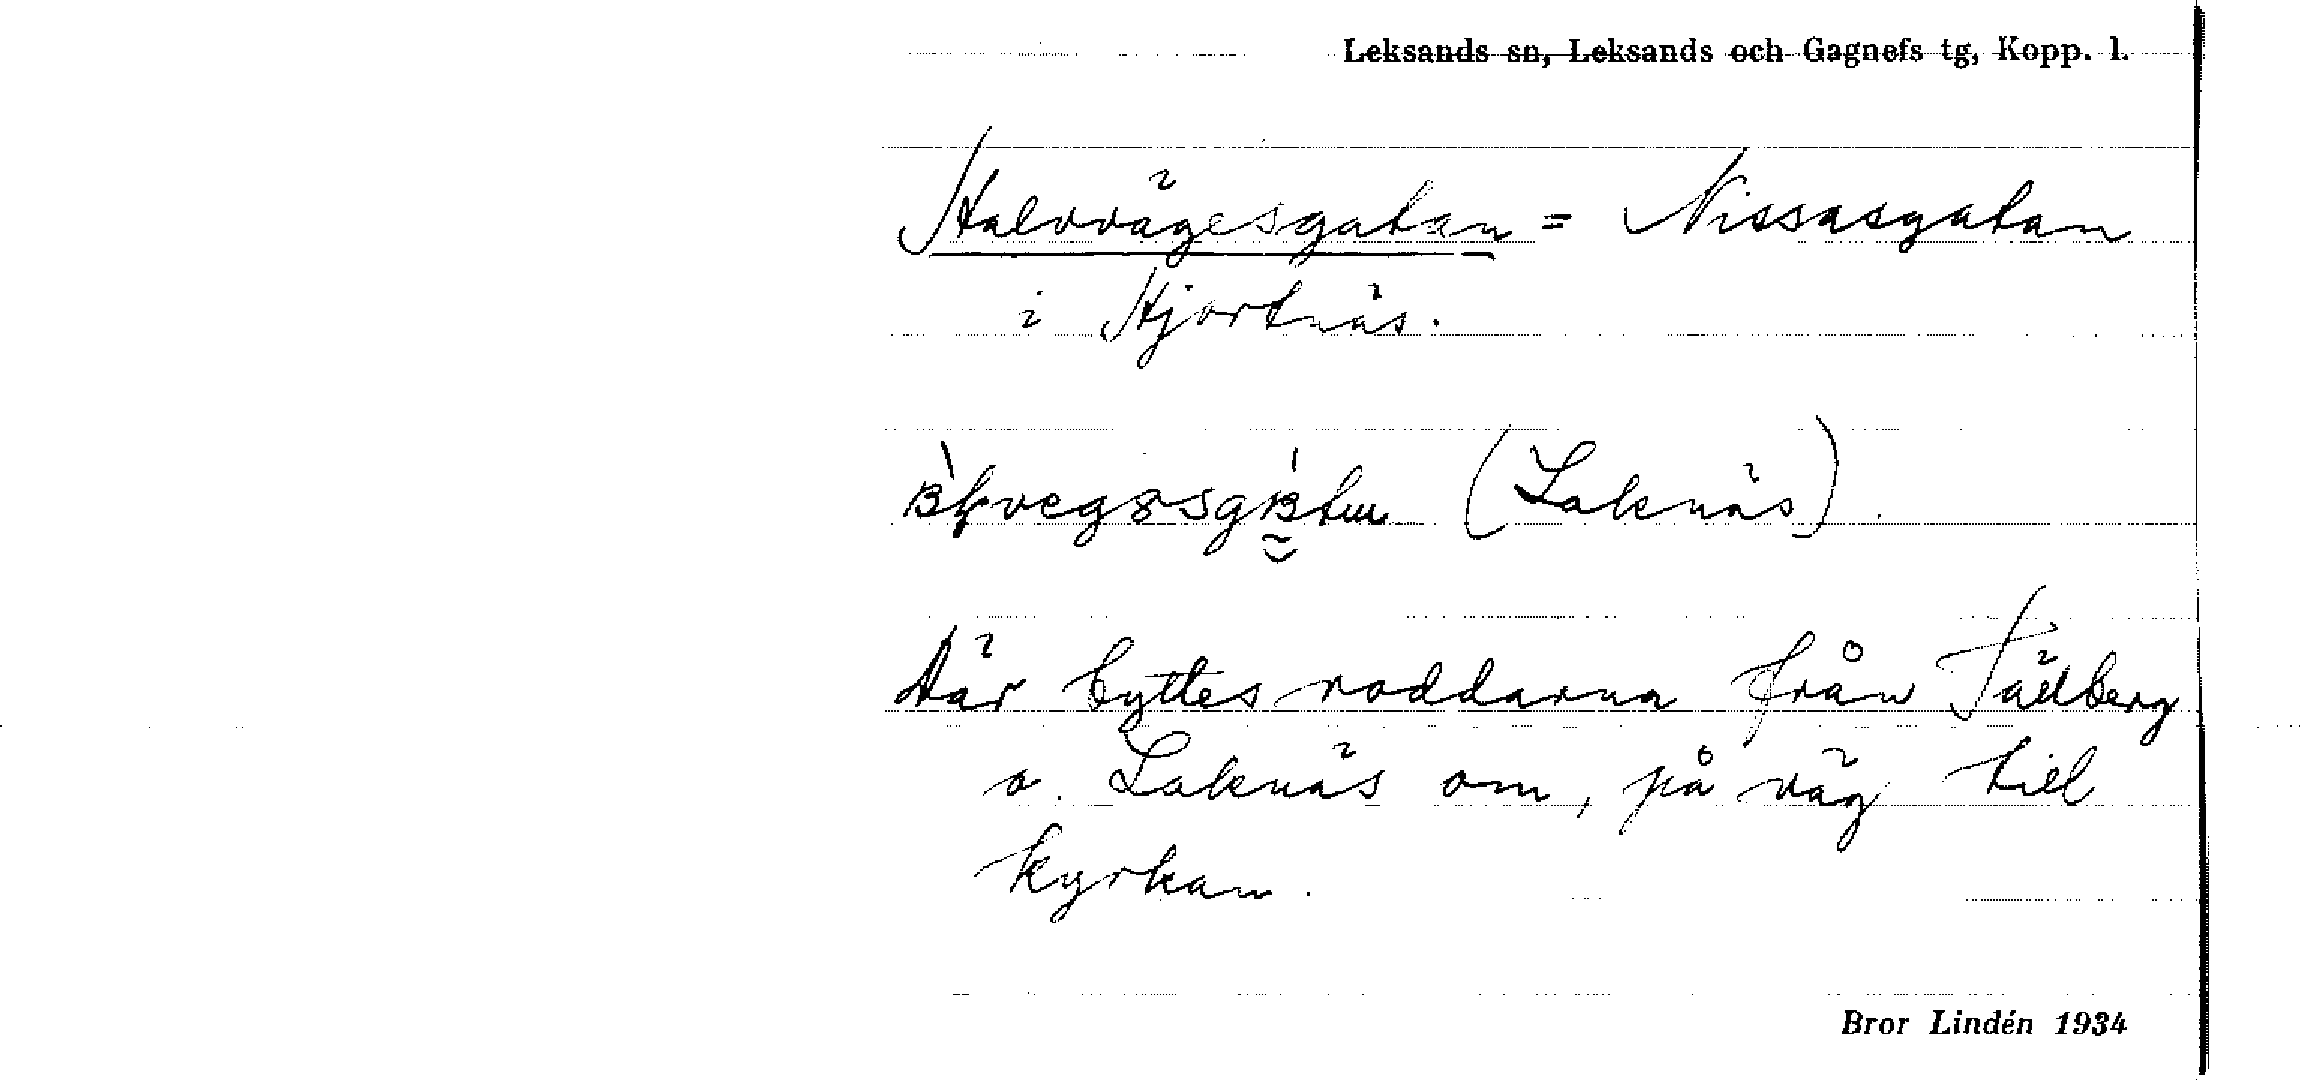 Leksands sn, Leksands och Gagnefs tg, Kopp. l.
Halvvägesgatan = Nissasgatan
i Hjortnäs.
(Laknäs).
Här byttes roddarna från Tällberg
o. Laknäs om, på väg till
kyrkan.
Bror Lindén 1934